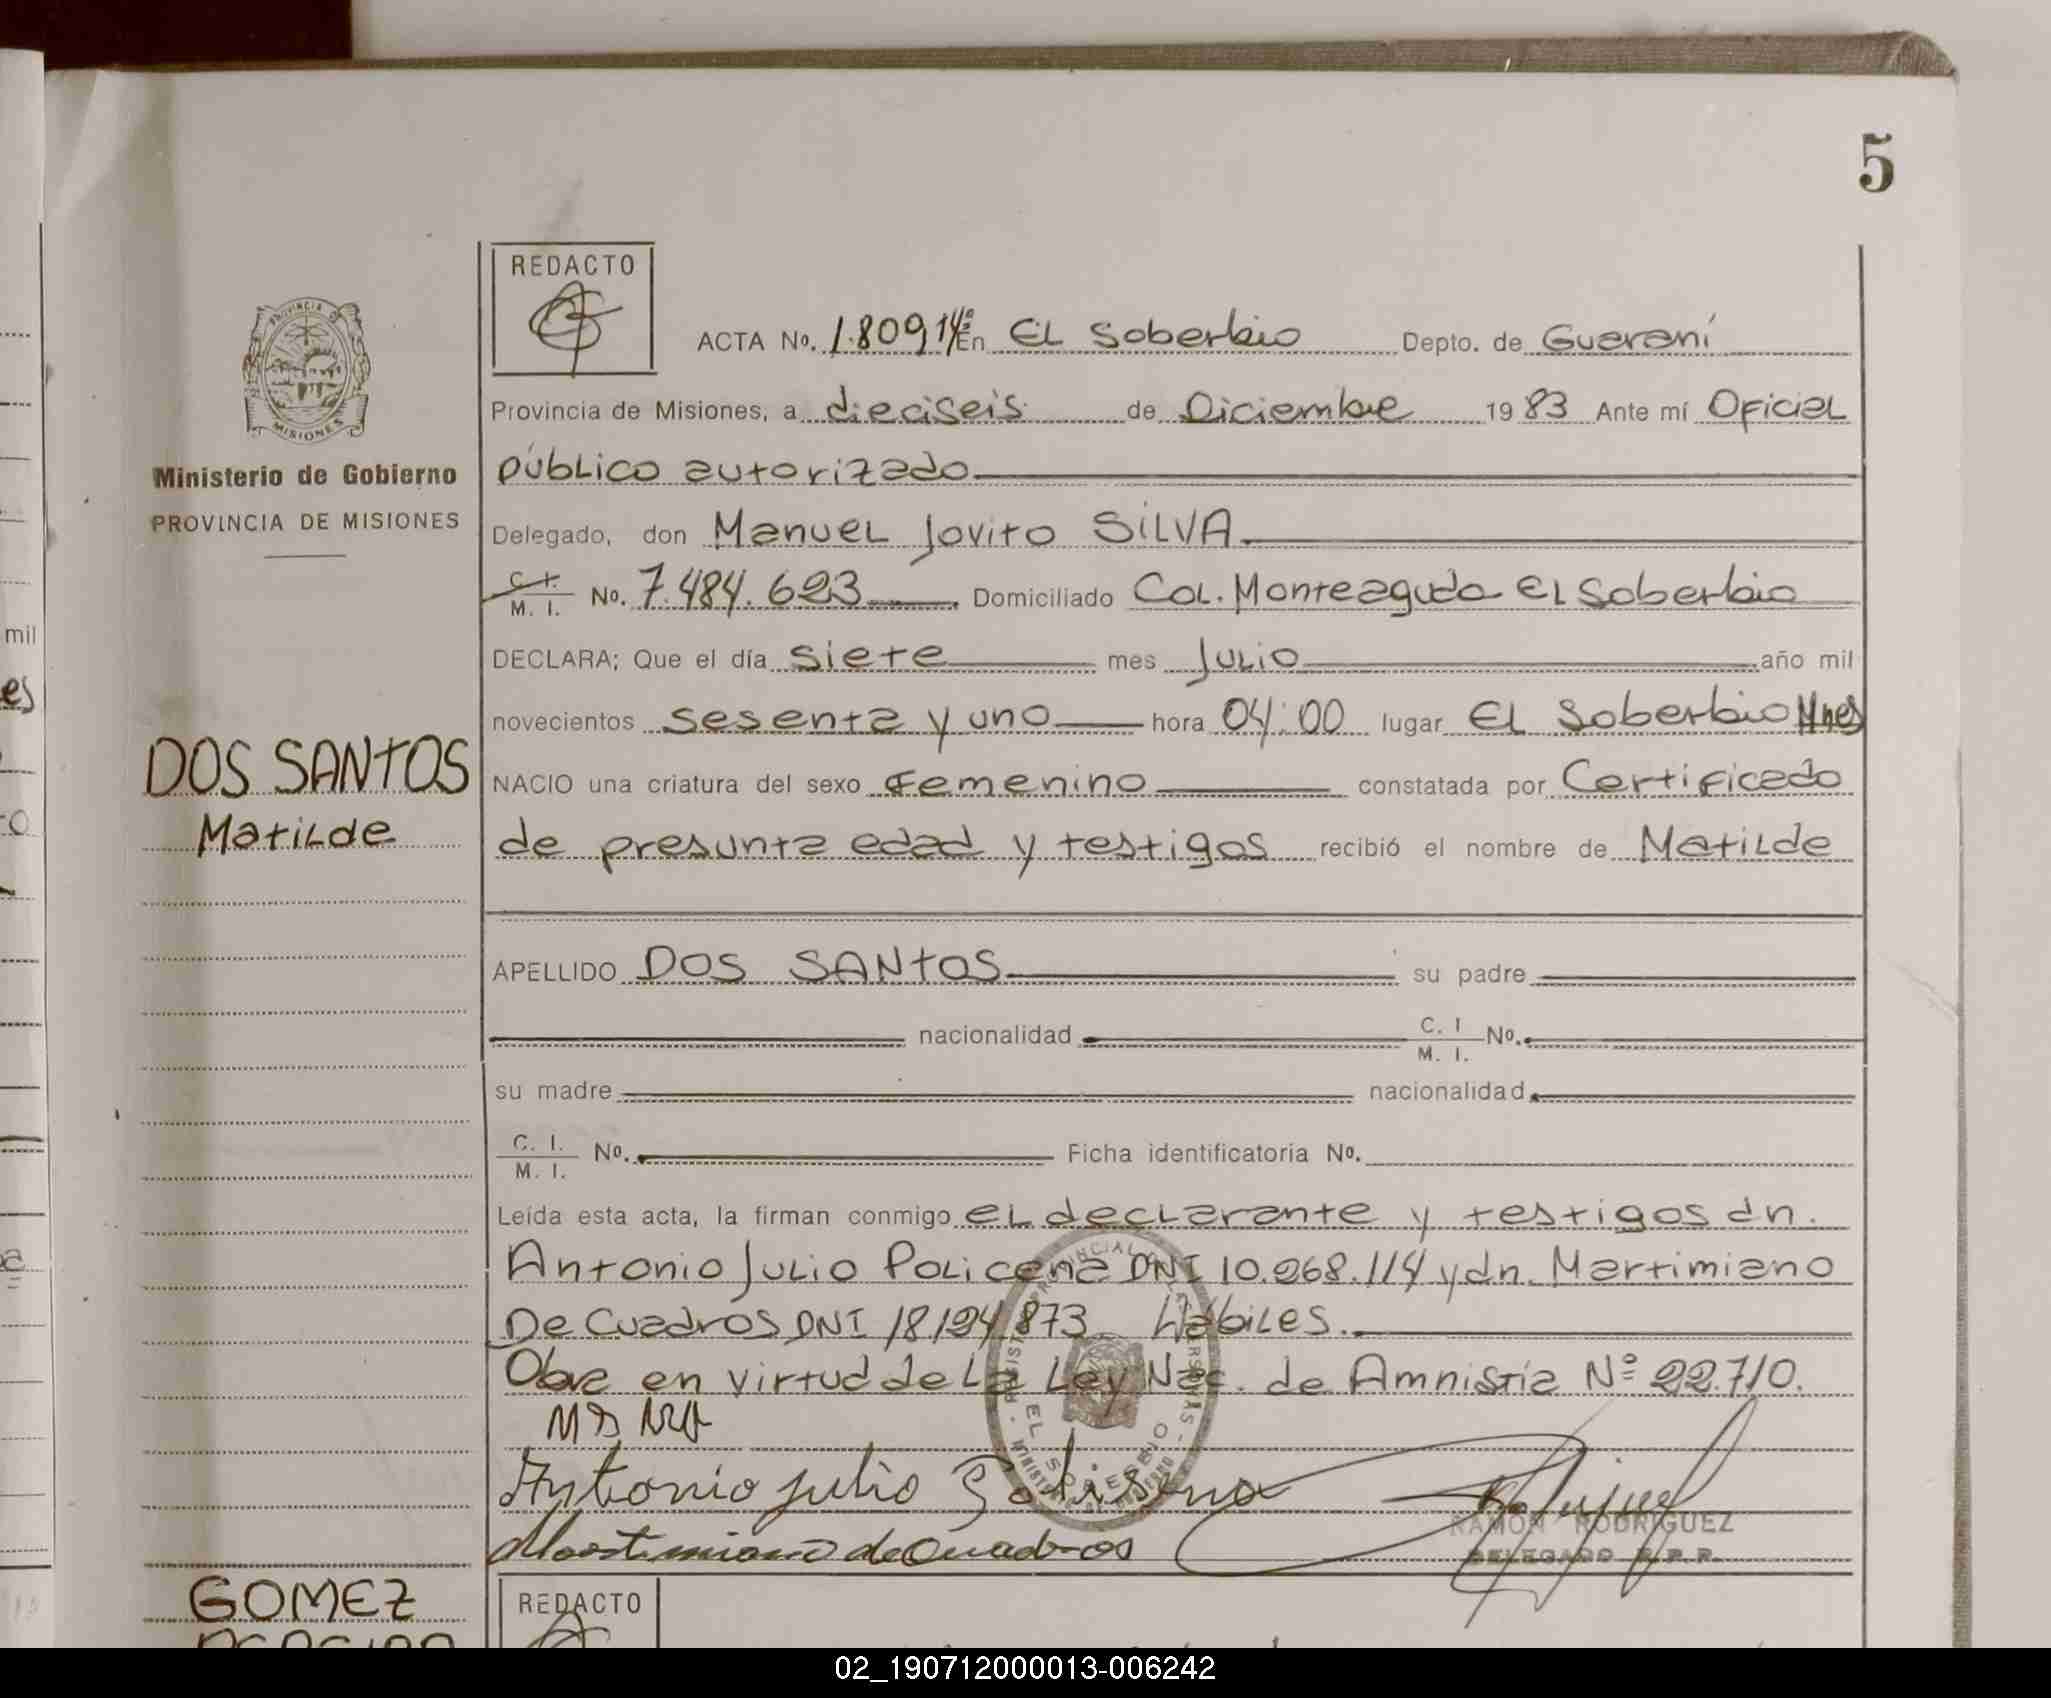 5
REDACTO
ACTA No. 1.809 14ª En El Soberbio Depto. de Guaraní
Provincia de Misiones, a dieciseis de Diciembre 1983 Ante mí Oficial
público autorizado
Delegado, don Manuel Jovito SILVA
C. I. M. I. No. 7.484.623 Domiciliado Col. Monteagudo El Soberbio
DECLARA; Que el día siete mes Julio año mil
novecientos sesenta y uno hora 04:00 lugar El Soberbio Mnes
NACIO una criatura del sexo Femenino constatada por Certificado
de presunta edad y testigos recibió el nombre de Matilde
APELLIDO DOS SANTOS su padre
nacionalidad C. I M. I. No.
su madre nacionalidad
C. I. M. I. No. Ficha identificatoria No.
Leída esta acta, la firman conmigo el declarante y testigos dn.
Antonio Julio Policena DNI 10.268.114 y dn. Martimiano
De Cuadros DNI 18.194.873 Hábiles.
Obra en virtud de La Ley Nac. de Amnistía Nº 22.710.
Antonio julio Polisena
Martimiano de Cuadros
RAMON RODRIGUEZ
DELEGADO R.P.P.
PROVINCIA DE
MISIONES
Ministerio de Gobierno
PROVINCIA DE MISIONES
DOS SANTOS
Matilde
GOMEZ
REDACTO
mil
es
EL SOBERBIO
02_190712000013-006242